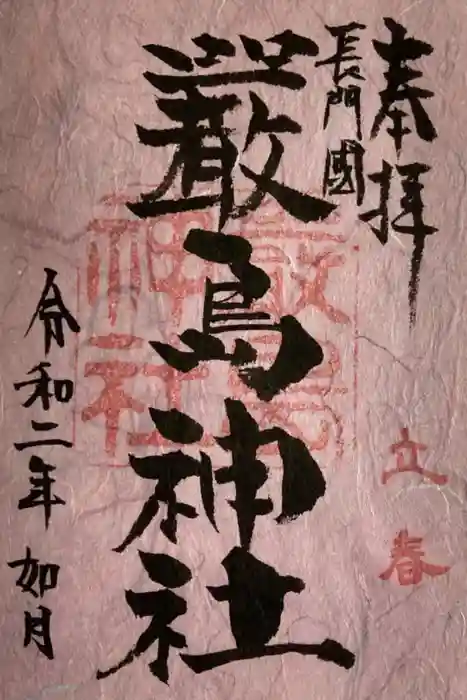 奉拝
長門國
嚴島神社
令和二年 如月
立春
嚴島
神社